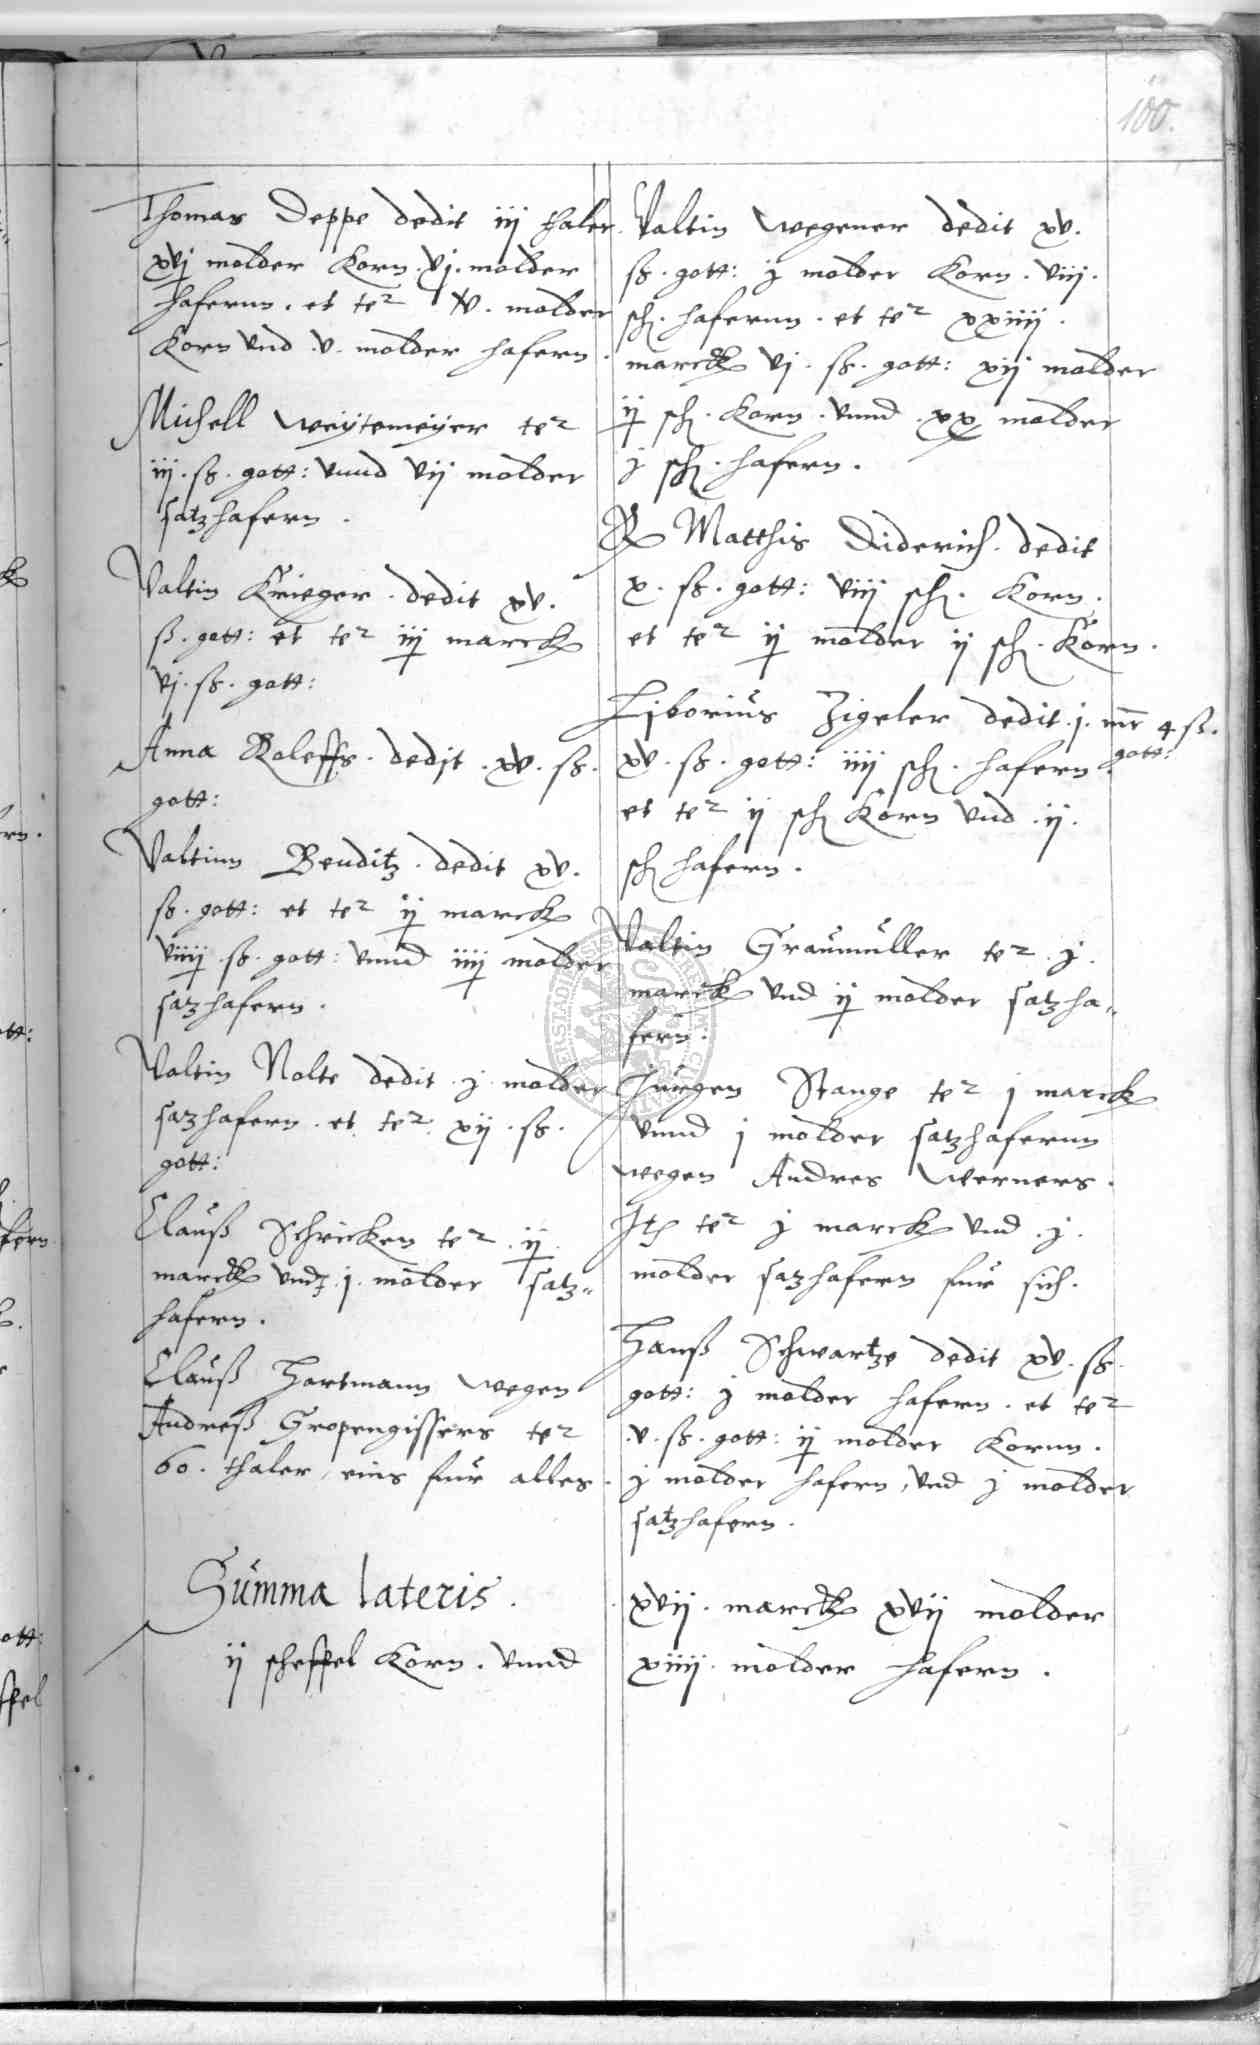 100.
Thomas Deppe dedit iij thaler
xvj molder Korn. vj. molder
hafernn. et te2 v. molder
Korn vnd v. molder hafern.
Michell Weytemeyer te2
iij. sß. gott: vnnd vij molder
satzhafern.
Valtin Krieger. dedit xv.
ß. gott: et te2 iij marck
vj. sß. gott:
Anna Roleffs. dedit. xv. sß.
gott:
Valtinn Benditz. dedit xv.
sß. gott: et te2 ij marck
viiij sß. gott: vnnd iiij molder
sazhafern.
Valtin Nolte dedit j molder
sazhafern. et te2 xij. sß.
gott:
Clauß Schricken te2 ij
marck vnd j. molder satz-
hafern.
Clauß Hartmann wegen
Andreß Gropengissers te2
60. thaler, eins fur alles.
Valtin Wegener dedit xv.
sß. gott: j molder Korn. viij.
sch. hafernn. et te2 xxiiij.
marck vj. sß. gott: xij molder
ij sch. Korn. vnnd xx molder
j sch. hafern.
Matthis Diderich. dedit
x. sß. gott: viij sch. Korn.
et te2 ij molder ij sch. Korn.
Liborius Zigeler dedit j. mr 4 ß.
gott:
xv. sß. gott: iiij sch. hafern.
et te2 ij sch Korn vnd ij.
sch hafern.
Valtin Graumuller te2 j.
marck vnd ij molder satzha-
fern.
Jurgen Stange te2 j marck
vnnd j molder satzhafernn
wegen Andres Werners.
Ite te2 j marck vnd j.
molder sazhafern fur sich.
Hanß Schwartze dedit xv. sß.
gott: j molder hafern. et te2
v. sß. gott: ij molder Kornn.
j molder hafern, vnd j molder
satzhafern.
Summa lateris.
xvij. marck xvij molder
ij scheffel Korn. vnnd
xiiij. molder hafern.